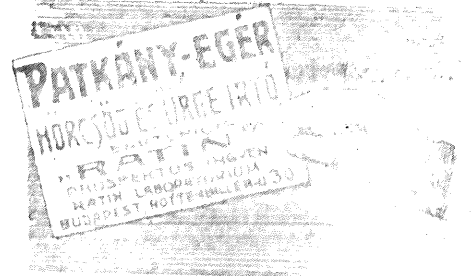 PATKÁNY-EGÉR
HÖRCSÖG ÉS ÜRGE IRTÓ
RATIN
PROSPEKTUS INGYEN
RATIN LABORATORIUM
BUDAPEST HOTTENBILLER-U 30